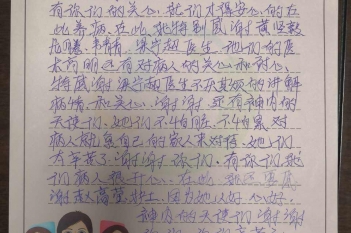 有你们的关心,就们才得安心的在
此养病.在此,我特别感谢黄坚毅
医生.他们的医
术高明还有对病人的关心和耐心,
特感谢梁 赵医生不厌其烦的讲解
病情和关心.谢谢.还有神内的
天使们,她们不怕脏,不怕累,对
病人就像自己的家人来对待.她们
辛苦了.谢谢你们.有你们我
们病人很开心.在此,
谢 高莹护士,因为她人好心好.
神内的天使们谢谢